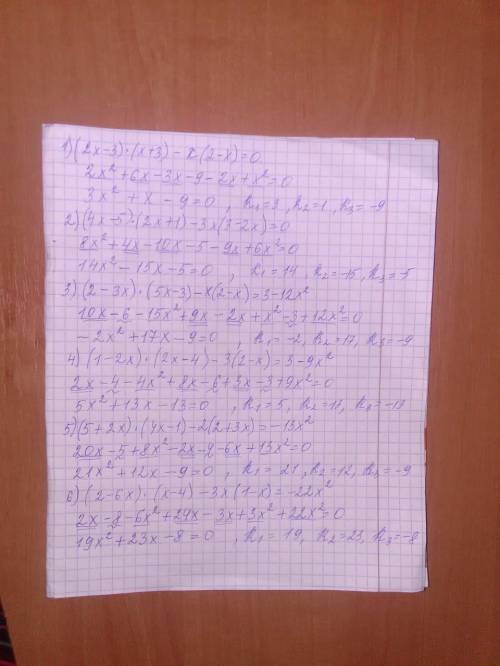 1) (2x-3)·(x+3)-x(2-x)=0
2x²+6x-3x-9-2x+x²=0
3x²+x-9=0 , k₁=3, k₂=1, k₃=-9
2) (4x-5)·(2x+1)-3x(3-2x)=0
8x²+4x-10x-5-9x+6x²=0
14x²-15x-5=0 , k₁=14, k₂=-15, k₃=-5
3) (2-3x)·(5x-3)-x(2-x)=3-12x²
10x-6-15x²+9x-2x+x²-3+12x²=0
-2x²+17x-9=0 , k₁=-2, k₂=17, k₃=-9
4) (1-2x)·(2x-4)-3(2-x)=3-9x²
2x-4-4x²+8x-6+3x-3+9x²=0
5x²+13x-13=0 , k₁=5, k₂=13, k₃=-13
5) (5+2x)·(4x-1)-2(2+3x)=-13x²
20x-5+8x²-2x-4-6x+13x²=0
21x²+12x-9=0 , k₁=21, k₂=12, k₃=-9
6) (2-6x)·(x-4)-3x(1-x)=-22x²
2x-8-6x²+24x-3x+3x²+22x²=0
19x²+23x-8=0 , k₁=19, k₂=23, k₃=-8